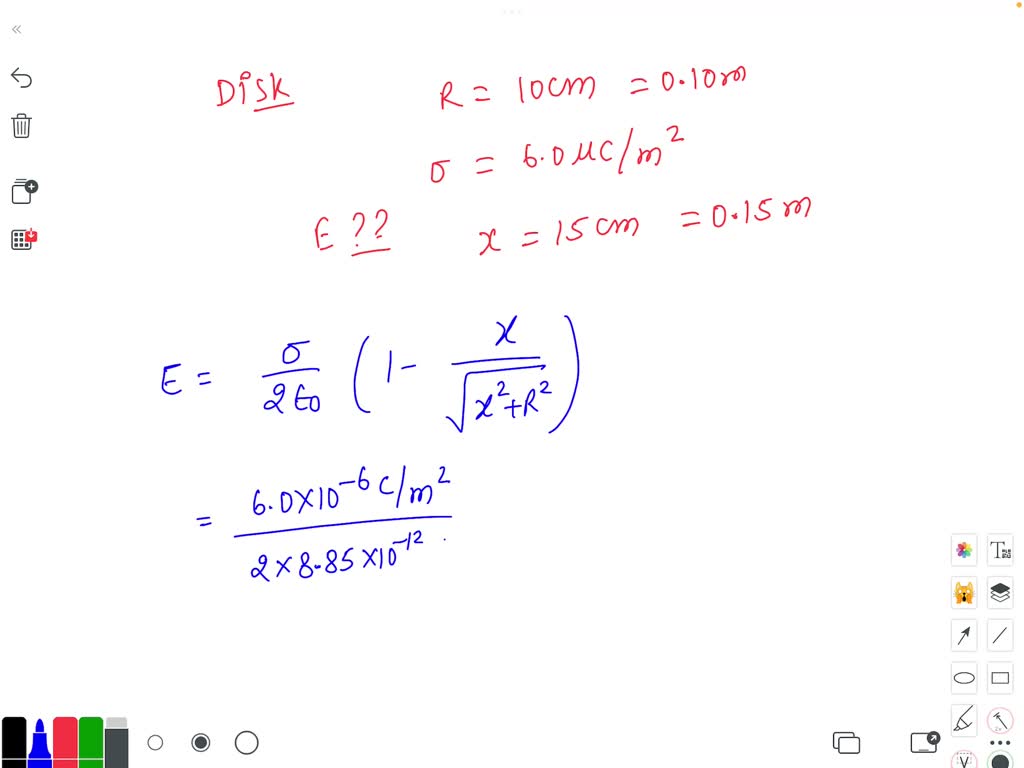 Disk R = 10cm = 0.10m
σ = 6.0 μC/m²
E ?? x = 15 cm = 0.15 m
E = σ/2ϵ₀ (1 - x/√(x²+R²))
= 6.0×10⁻⁶ C/m² / 2×8.85×10⁻¹²